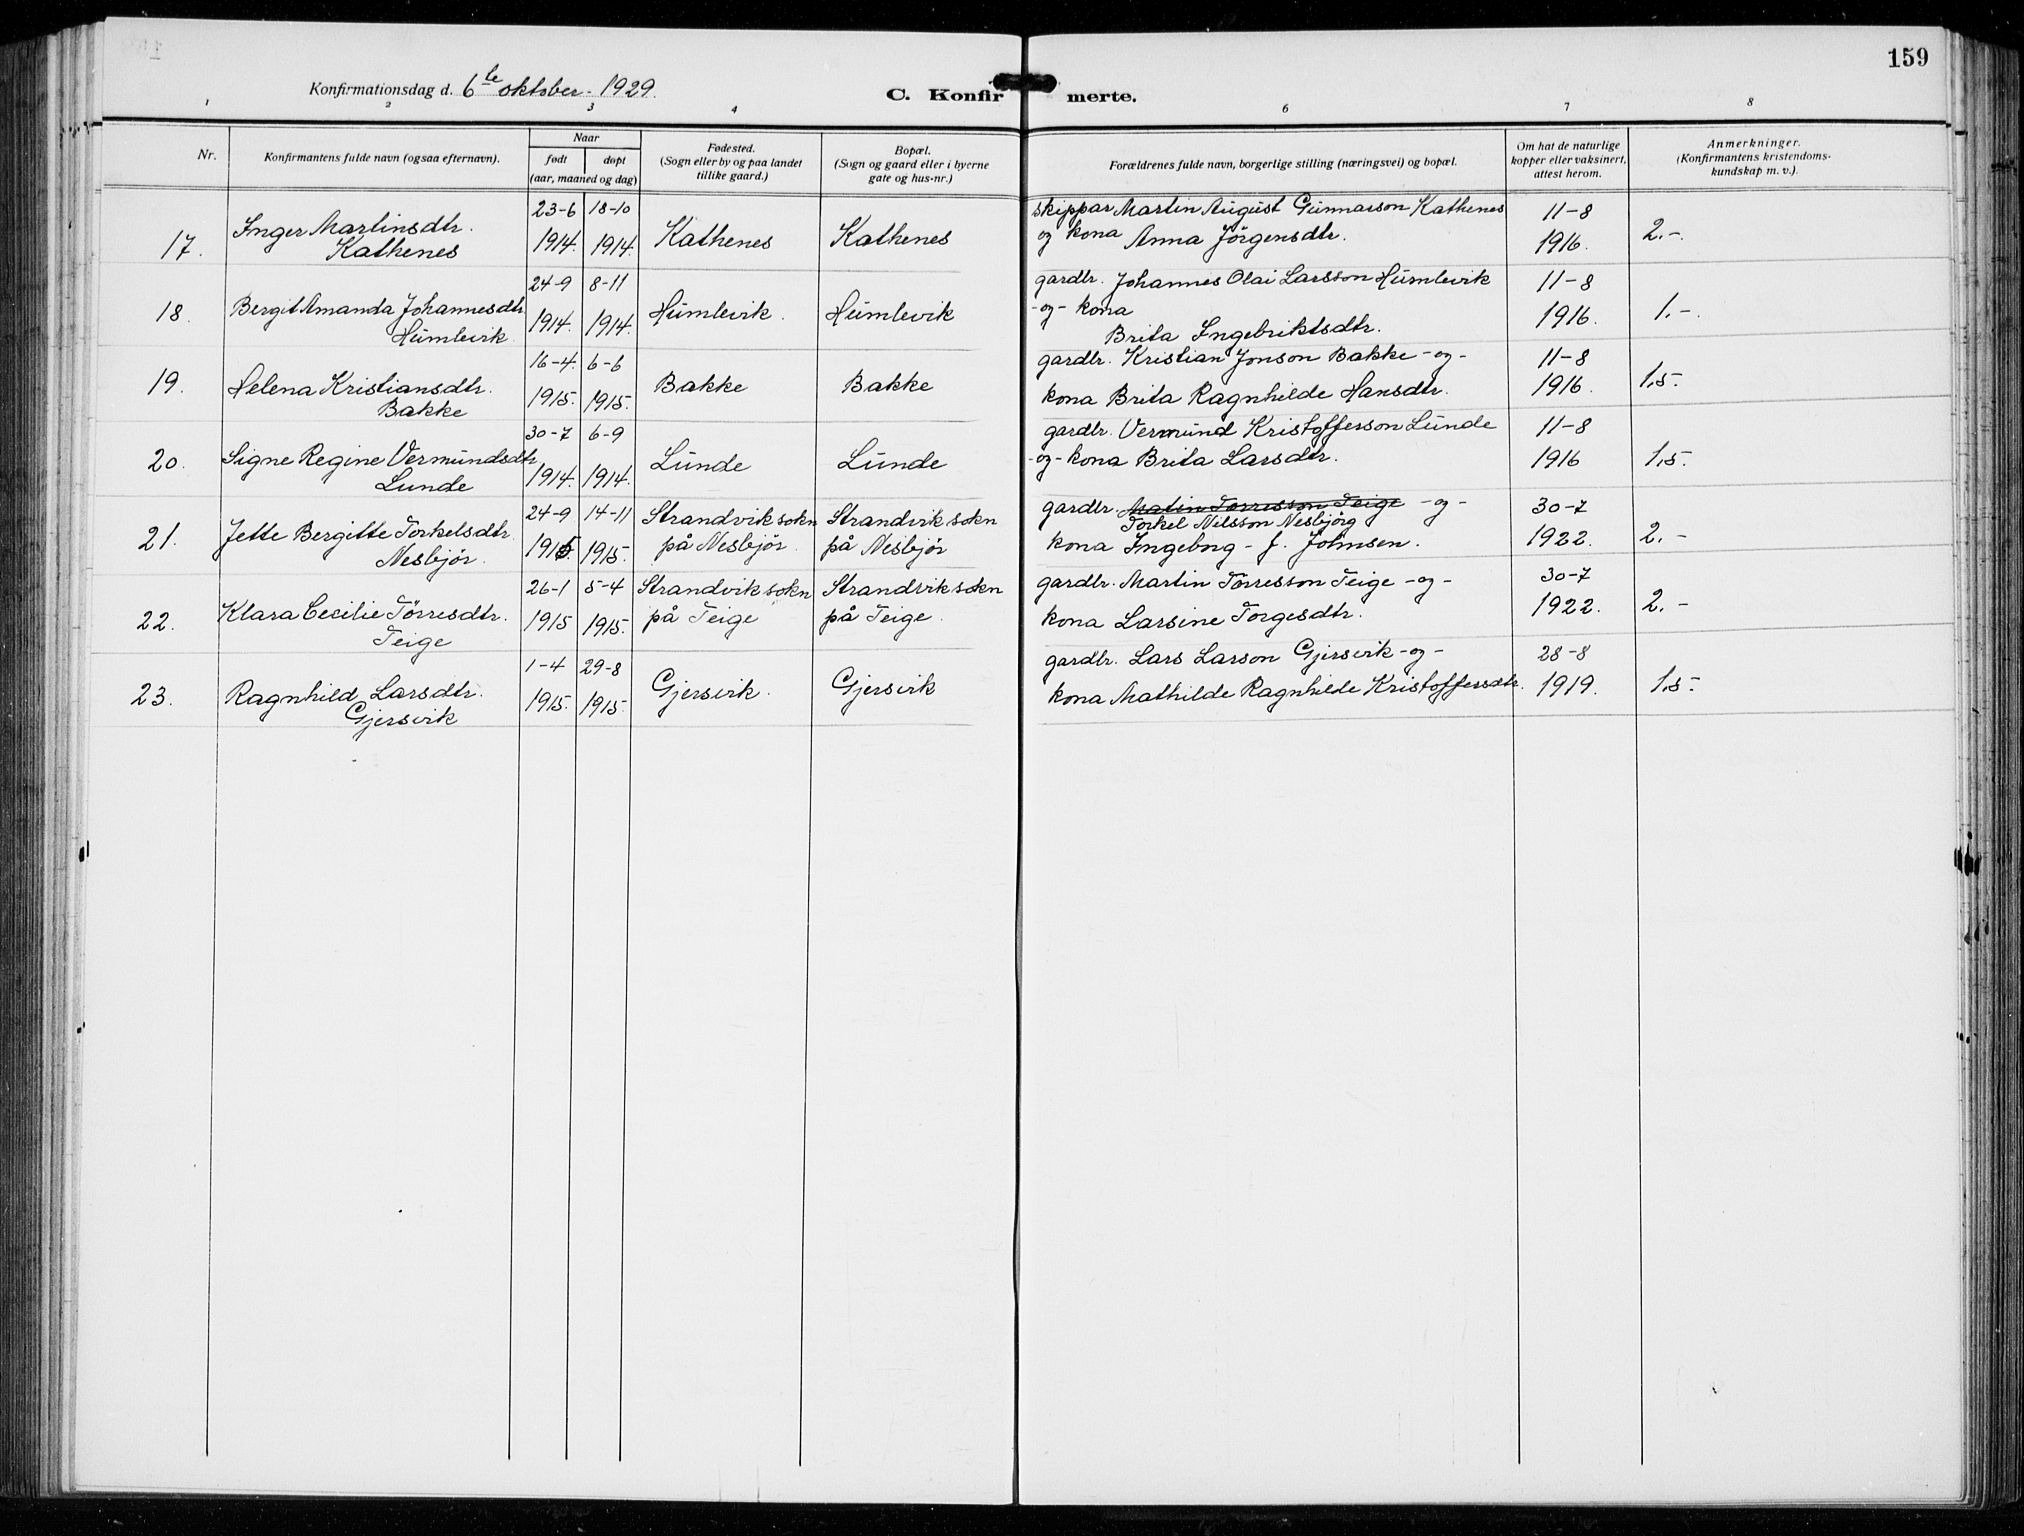 159
Konfirmationsdag d. 6te oktober - 1929.
C. Konfirmerte.
1 2 3 4 6 7 8
Nr.
Konfirmantens fulde navn (ogsaa efternavn).
Naar
født døpt
(aar, maaned og dag)
Fødested.
(Sogn eller by og paa landet
tillike gaard.)
Bopæl.
(Sogn og gaard eller i byerne
gate og hus-nr.)
Forældrenes fulde navn, borgerlige stilling (næringsvei) og bopæl.
Om hat de naturlige
kopper eller vaksinert,
attest herom.
Anmerkninger.
(Konfirmantens kristendoms-
kundskap m. v.).
23-6 18-10 skippar Martin August Gunnarson Kathenes 11-8
17. Inger Martinsdtr. 1914. 1914. Kathenes Kathenes og kona Anna Jörgensdtr. 1916. 2.-.
Kathenes
24-9 8-11 gardbr. Johannes Olai Larsson Humlevik 11-8
18. Bergit Amanda Johannesdtr 1914. 1914. Humlevik. Humlevik -og- kona 1916. 1.-.
Humlevik Brita Ingebriktsdtr.
16-4. 6-6 gardbr. Kristian Jonson Bakke -og- 11-8
19. Helena Kristiansdtr. 1915. 1915. Bakke Bakke kona Brita Ragnhilde Hansdtr. 1916. 1,5.
Bakke
30-7 6-9 gardbr. Vermund Kristofferson Lunde 11-8
20. Signe Regine Vermundsdtr 1914. 1914. Lunde Lunde -og- kona Brita Larsdtr. 1916 1,5.
Lunde
24-9 14-11 Strandvik sokn Strandvik sokn gardbr. Matin Torresson Teige -og- 30-7
Torkel Nilsson Nesbjörg
21. Jette Bergitte Torkelsdtr 1915. 1915. på Nesbjör. på Nesbjör kona Ingeborg - f. Johnsen. 1922. 2.-
Nesbjör.
26-1 5-4 Strandvik sokn Strandvik sokn gardbr. Martin Törresson Teige -og- 30-7
22. Klara Cecilie Törresdtr. 1915 1915. på Teige på Teige. kona Larsine Torgesdtr. 1922. 2.-
Teige
1-4 29-8 gardbr. Lars Larson Gjersvik -og- 28-8
23. Ragnhild Larsdtr. 1915. 1915. Gjersvik. Gjersvik kona Mathilde Ragnhilde Kristoffersdtr. 1919. 1,5.-
Gjersvik